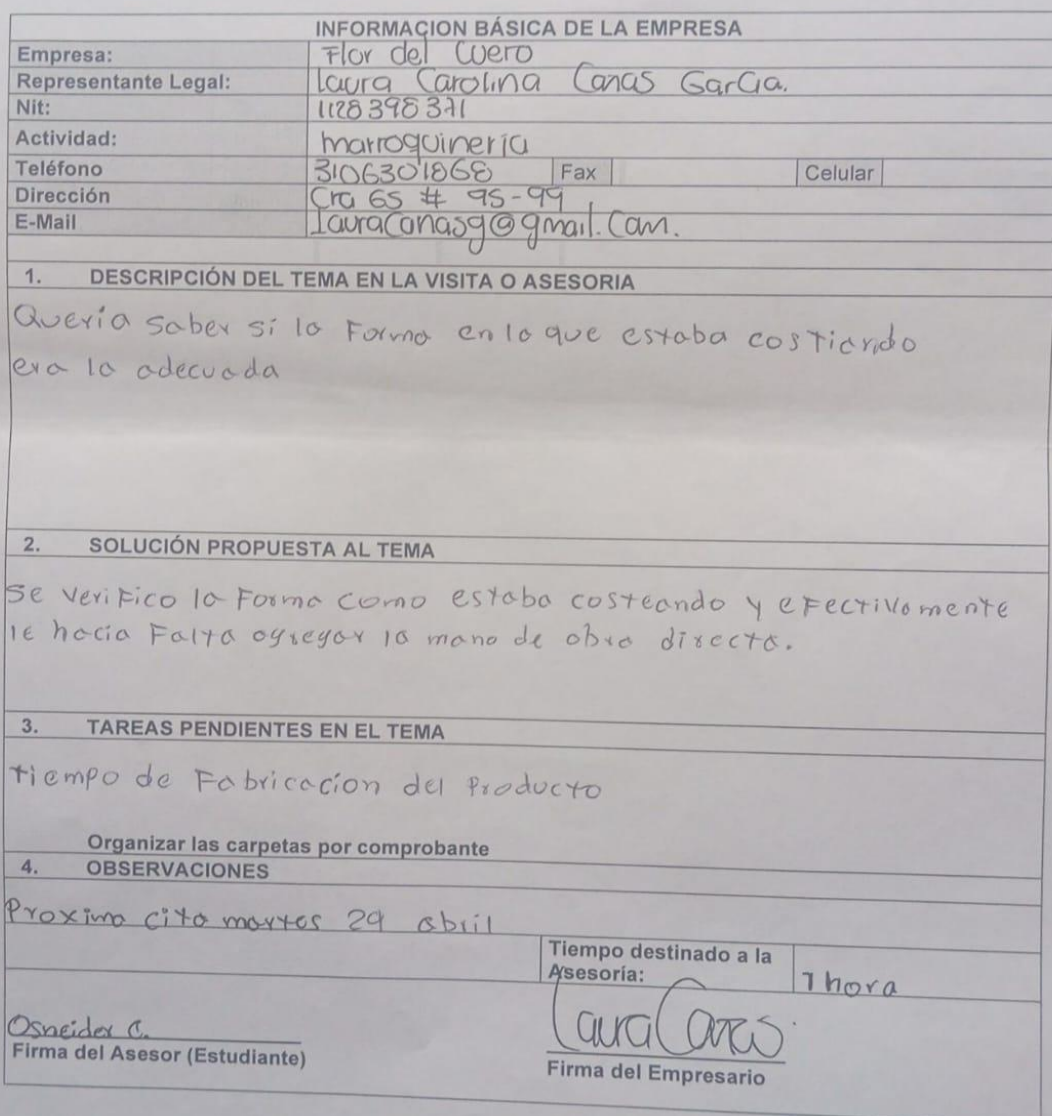 INFORMACION BÁSICA DE LA EMPRESA
Empresa: Flor del Cuero
Representante Legal: Laura Carolina Canas Garcia.
Nit: 1128398371
Actividad: marroquinería
Teléfono 3106301868 Fax Celular
Dirección Cra 65 # 95-99
E-Mail Lauracanasg@gmail.com.
1. DESCRIPCIÓN DEL TEMA EN LA VISITA O ASESORIA
Quería saber si la Forma en la que estaba costiando
era la adecuada
2. SOLUCIÓN PROPUESTA AL TEMA
Se verifico la Forma como estaba costeando y efectivamente
le hacia Falta agregar la mano de obra directa.
3. TAREAS PENDIENTES EN EL TEMA
tiempo de Fabricacion del Producto
Organizar las carpetas por comprobante
4. OBSERVACIONES
Proxima cita martes 29 abril
Tiempo destinado a la
Asesoría: 1 hora
Osneider C. Laura Canas
Firma del Asesor (Estudiante) Firma del Empresario